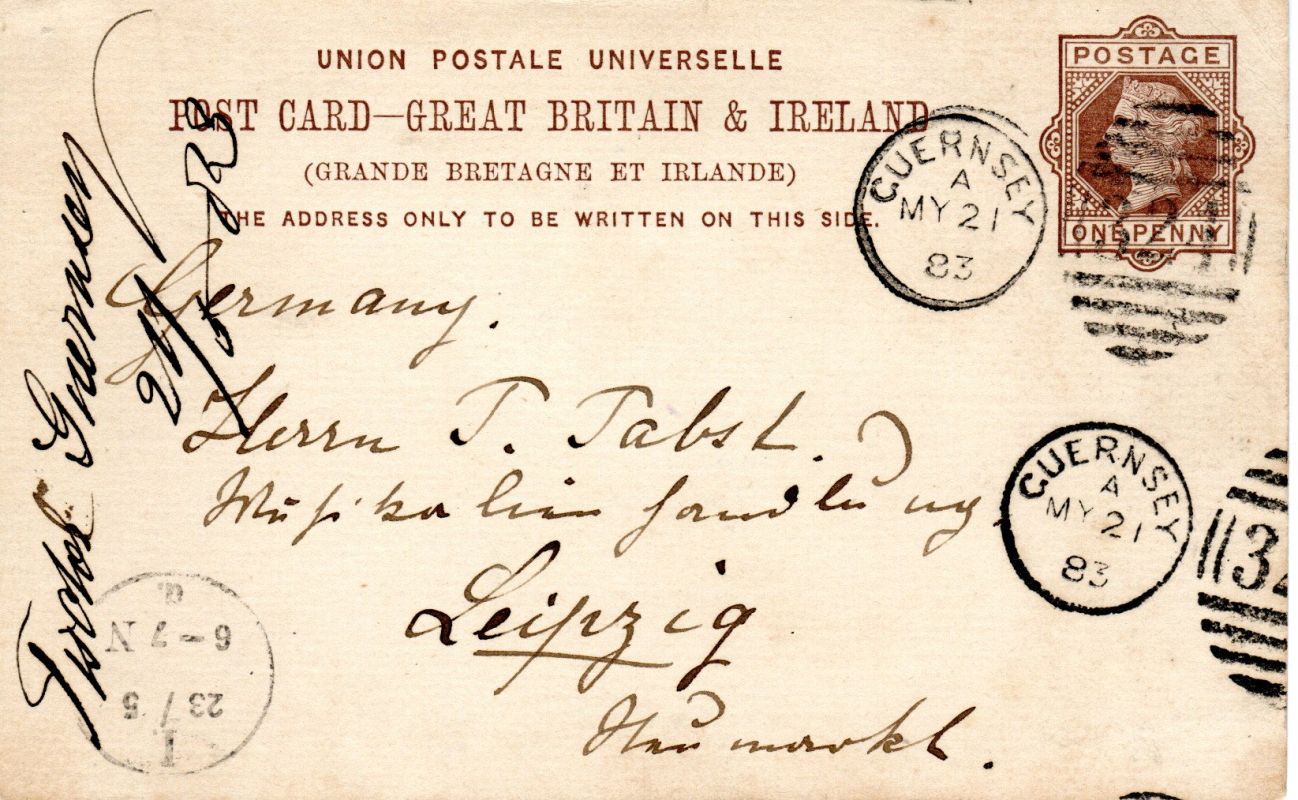 UNION POSTALE UNIVERSELLE
POST CARD—GREAT BRITAIN & IRELAND
(GRANDE BRETAGNE ET IRLANDE)
THE ADDRESS ONLY TO BE WRITTEN ON THIS SIDE.
POSTAGE
ONE PENNY
GUERNSEY
A
MY 21
83
324
Germany.
Herrn T. Tabst.
Musikalienhandlung
Leipzig
Neumarkt.
GUERNSEY
A
MY 21
83
Guernsey
21/5 83
I
23/5
6-7 N
a.